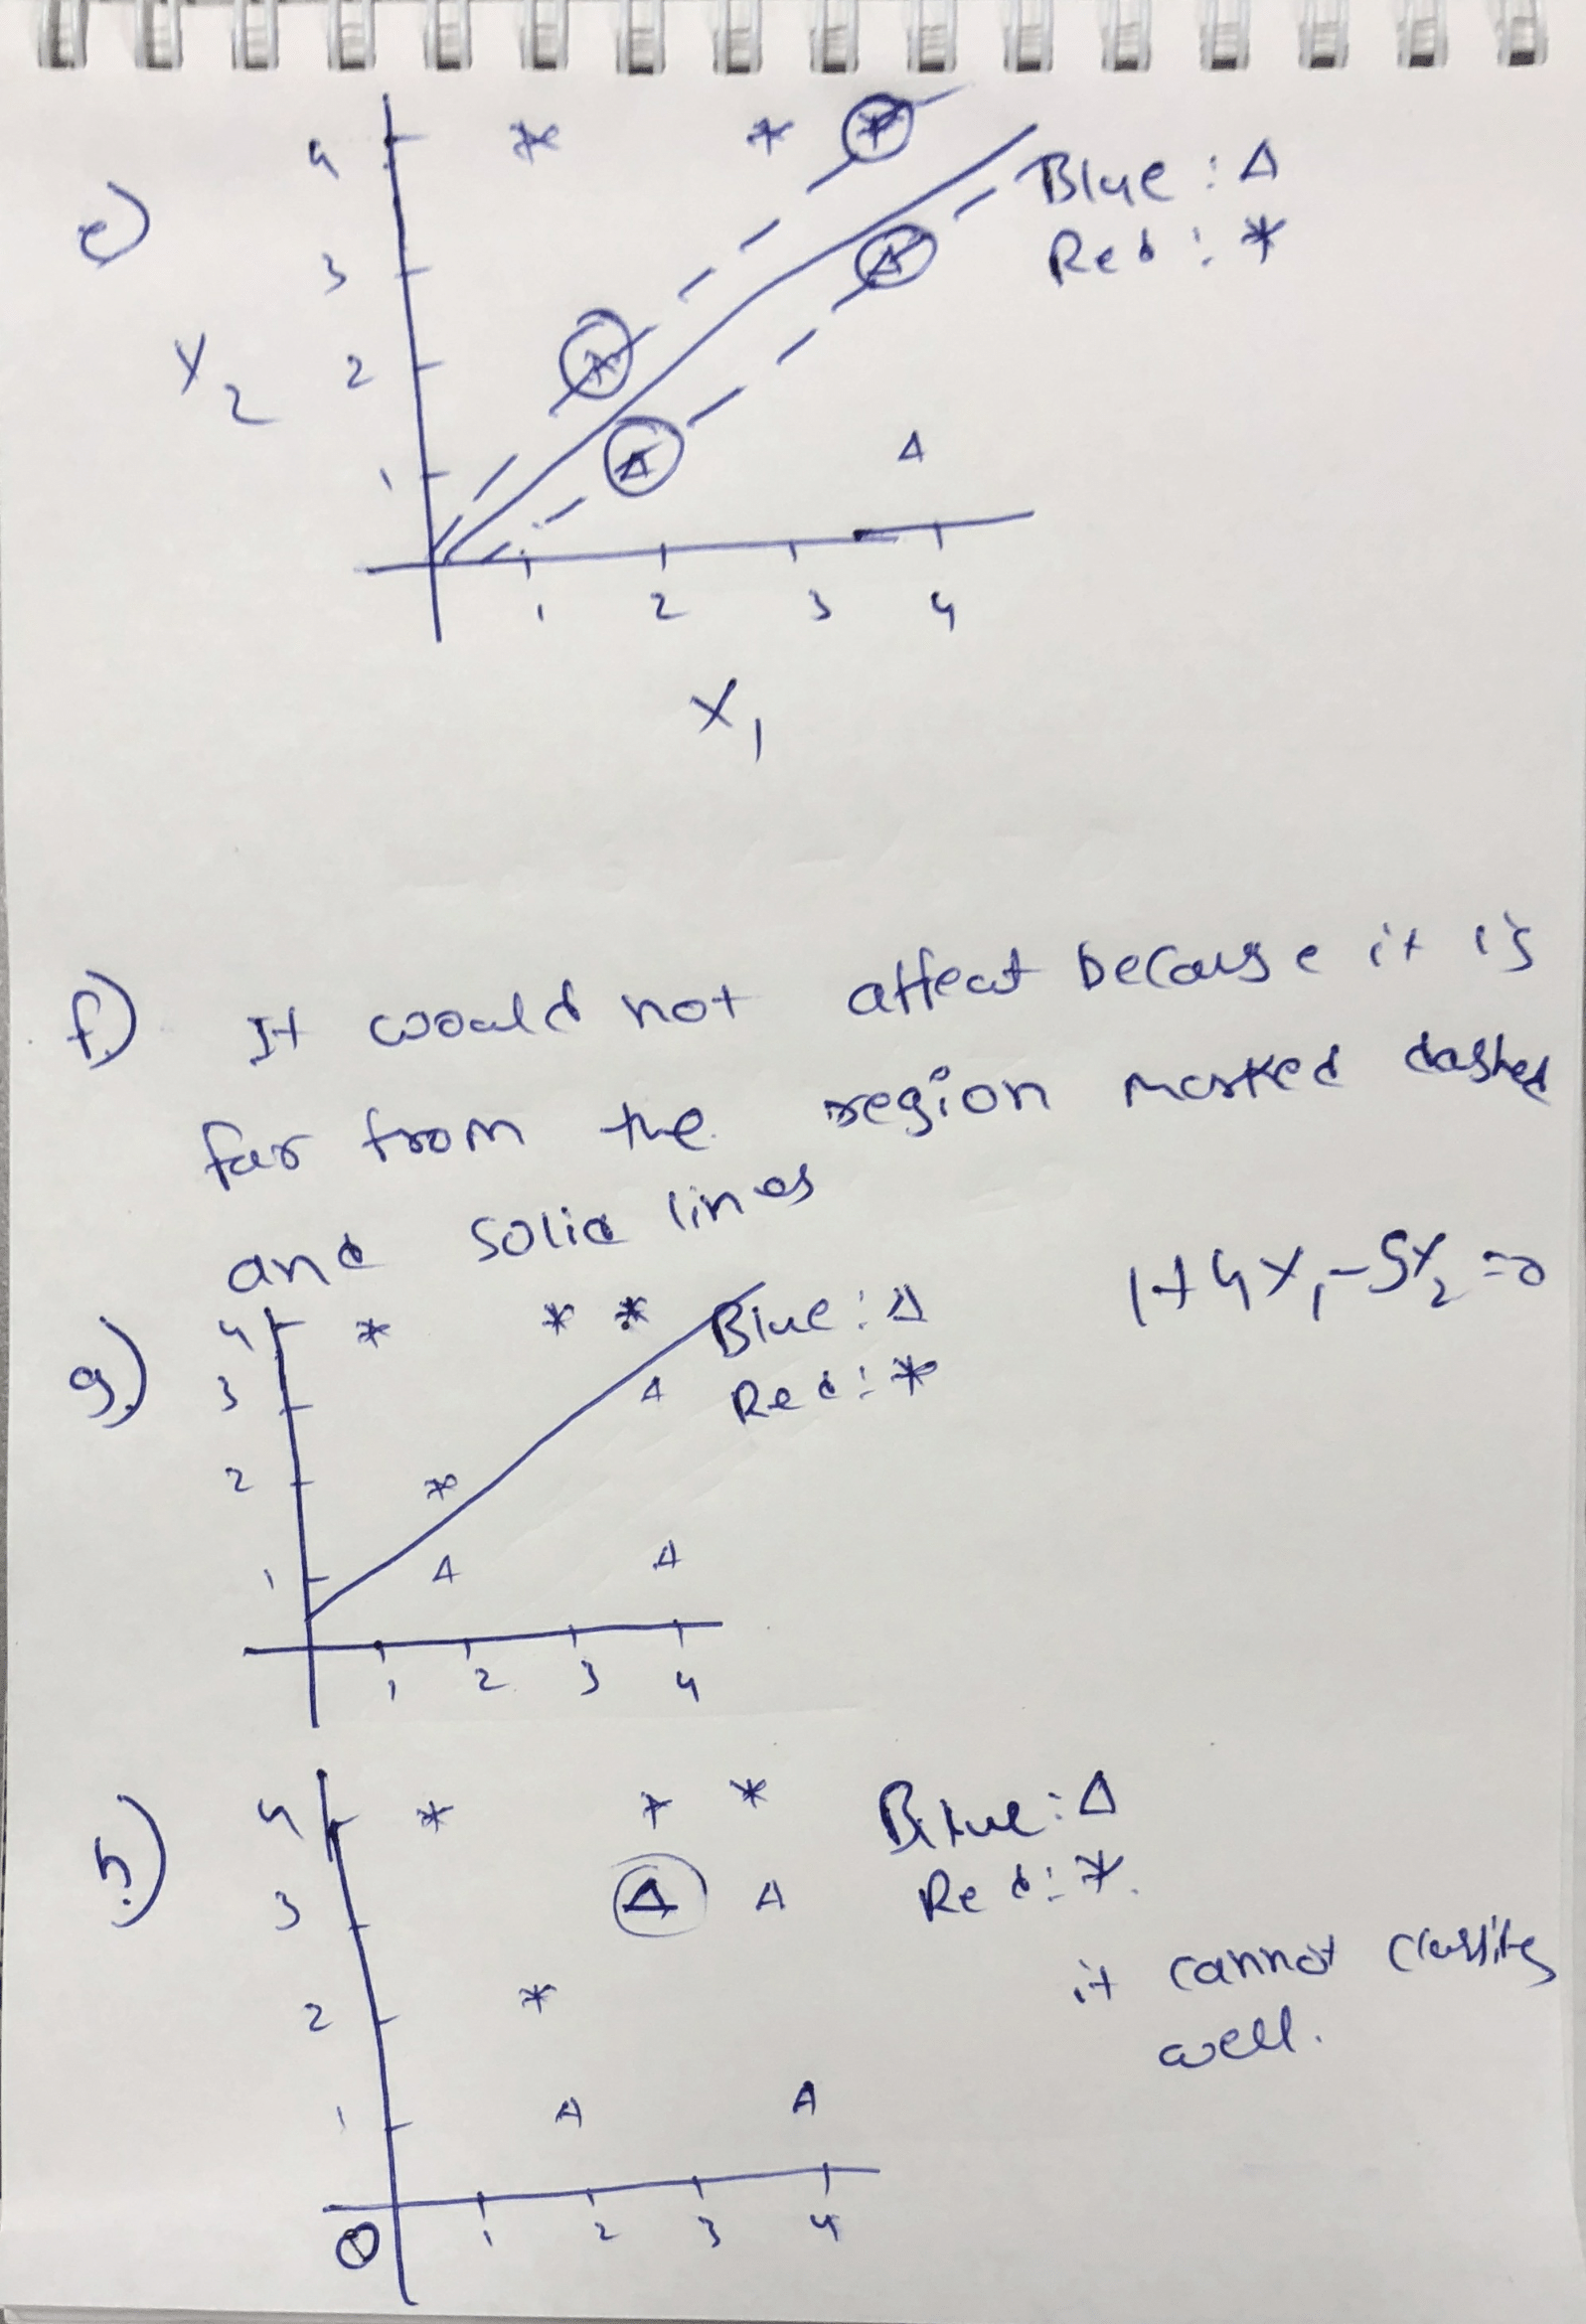 e)
4
3
2
1
X2
1 2 3 4
X1
Blue : Δ
Red : *
f) It would not affect because it is
far from the region marked dashed
and solid lines
1+4X1-5X2=0
g)
4
3
2
1
1 2 3 4
Blue : Δ
Red : *
h)
4
3
2
1
0 1 2 3 4
Blue : Δ
Red : *.
it cannot classify
well.